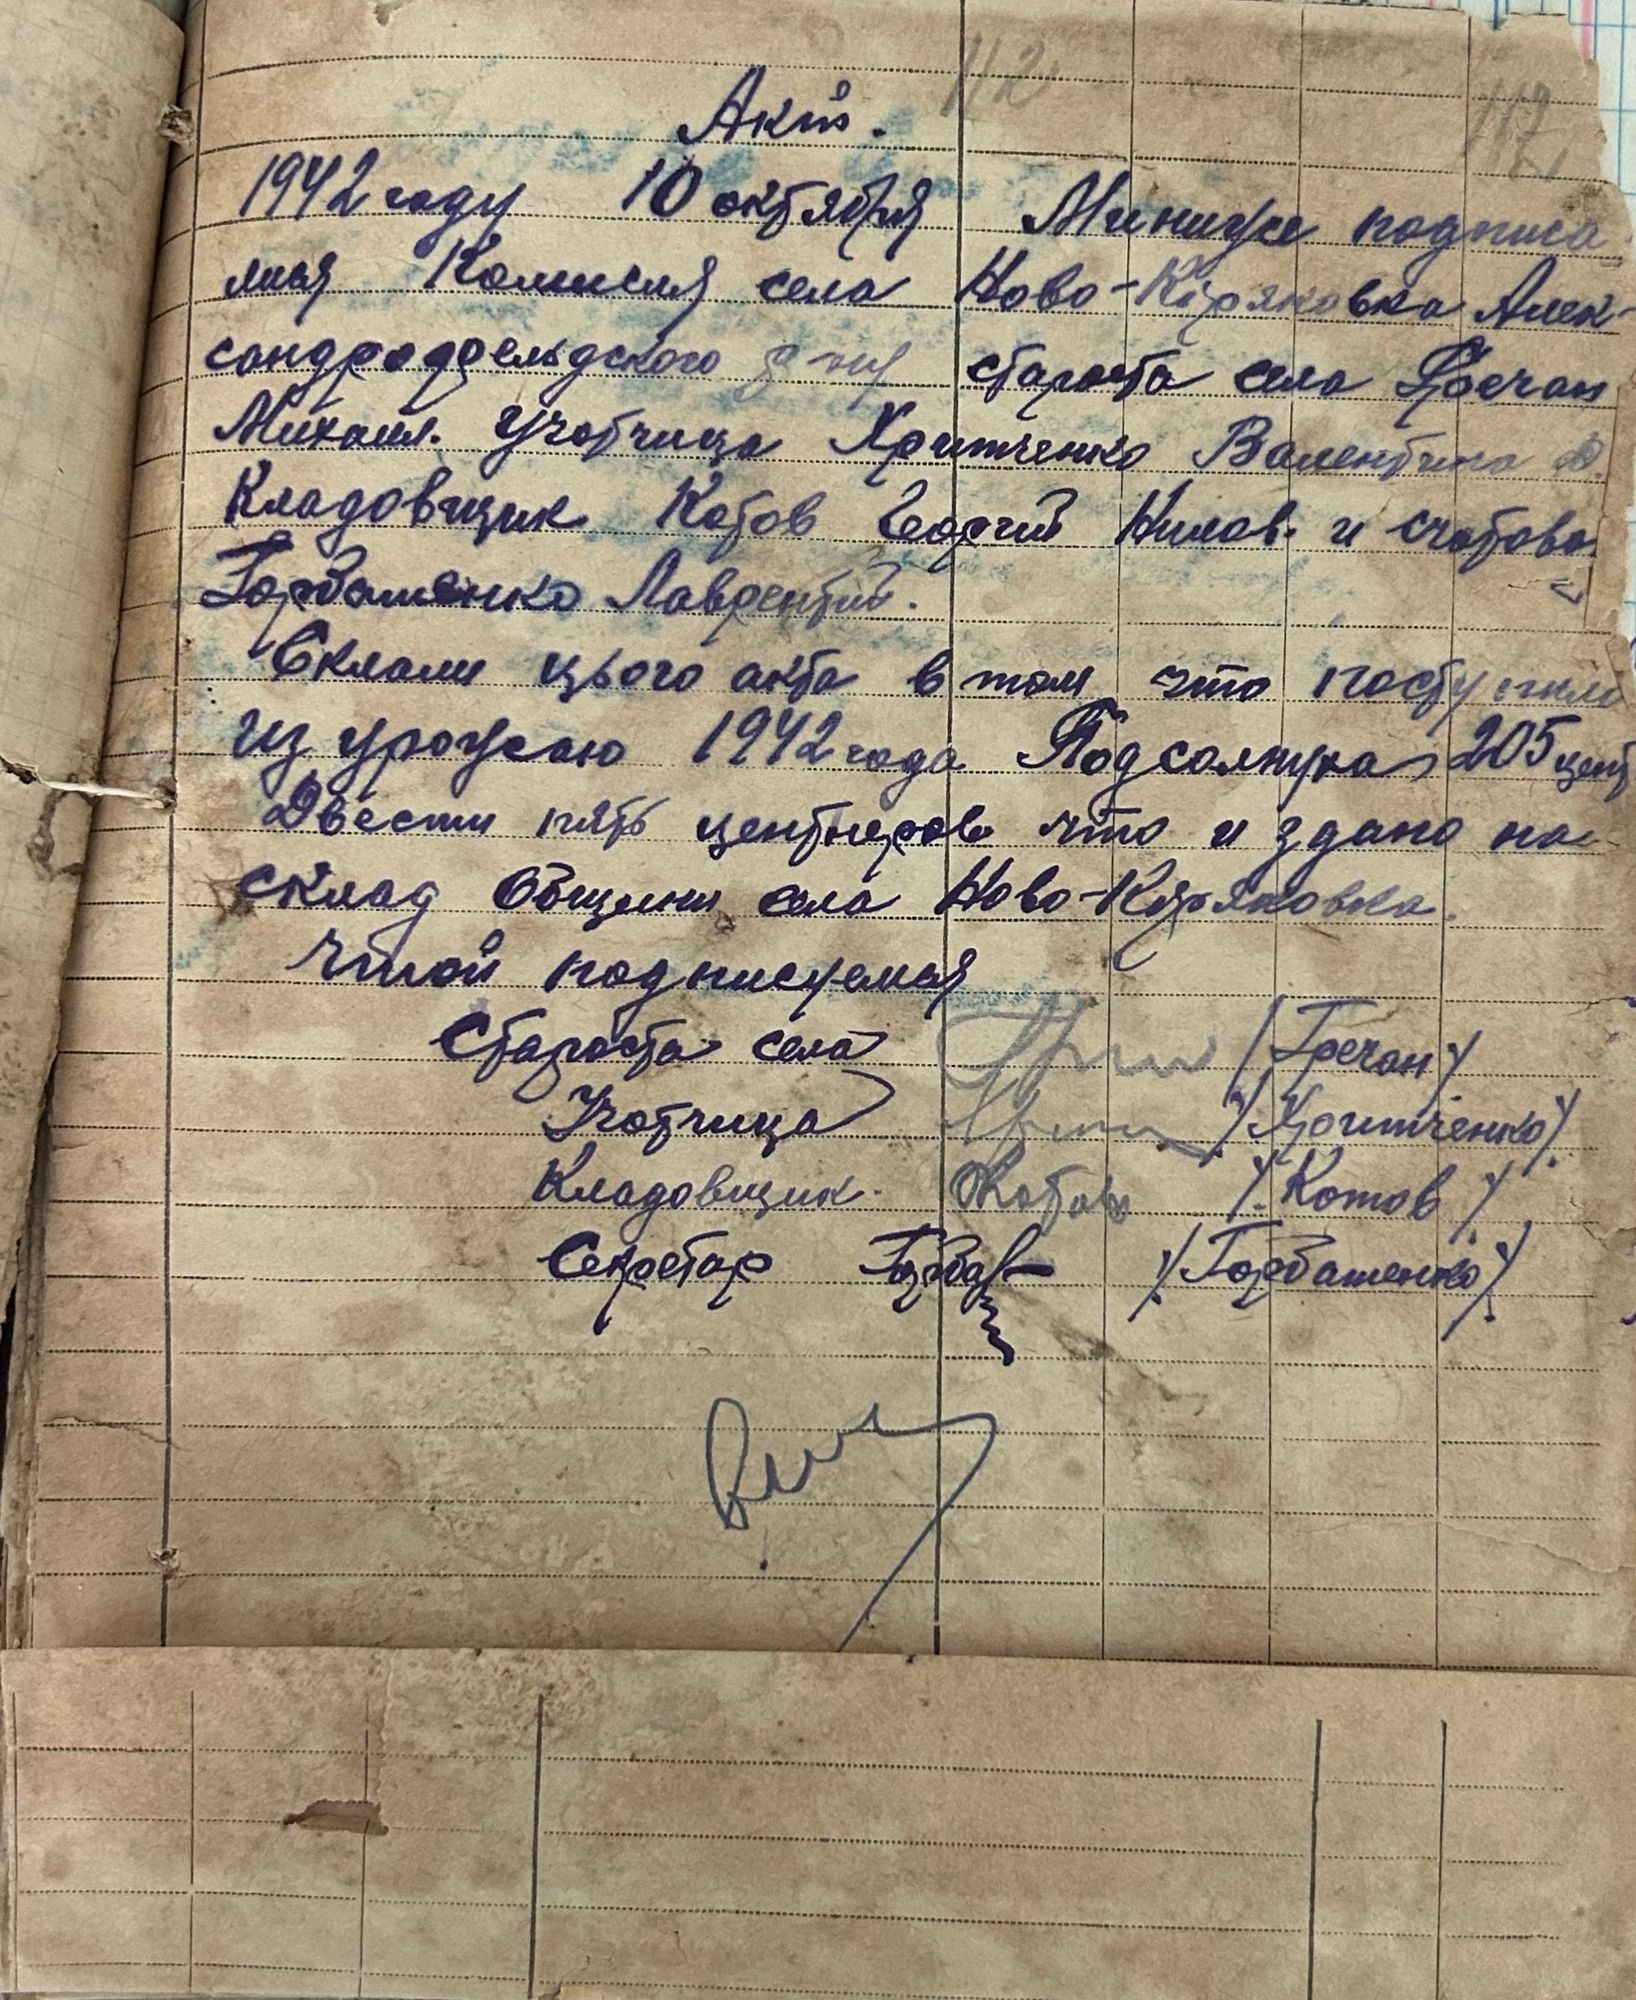 112
117
Актъ.
1942 году 10 октября Минуже подписа
лися Комисия села Ново-Кіряковка Алек-
сандродфельдского р-ну староста села Гречан
Михаил. Учотчица Хритченко Валентина
Кладовщик Котов Георгий Нилов. и счотово
Горбатенко Лаврентий.
Склали цього акта в том что поступило
из урожаю 1942 года Подсолнуха 205 цент
Двести пять центнеров что и здано на
склад Общини села Ново-Кіряковка.
Чтой подписуемся
Староста села /Гречан/
Учотчица /Хритченко/
Кладовщик. Котов /Котов/
Секретар Горба /Горбатенко/